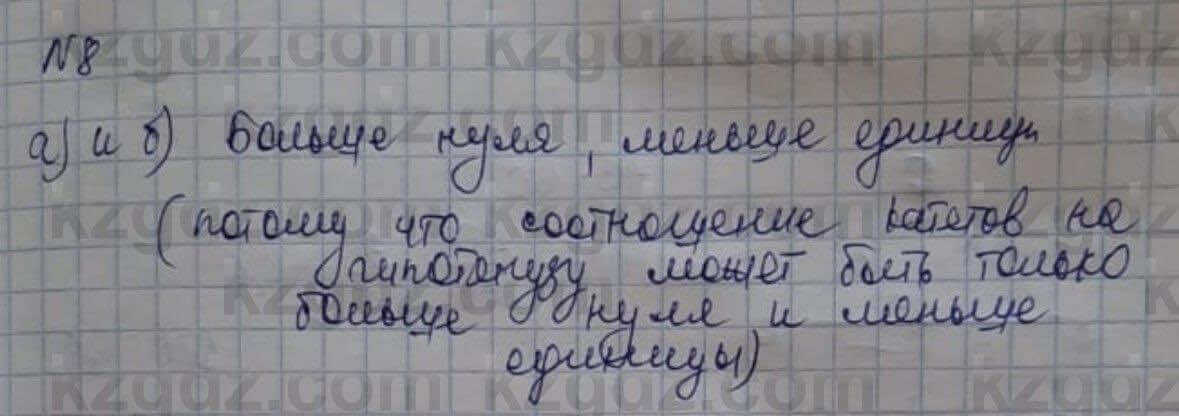 N8
а) и б) больше нуля, меньше единицы
(потому что соотношение катетов на
гипотенузу может быть только
больше нуля и меньше
единицы)
kzgdz.com